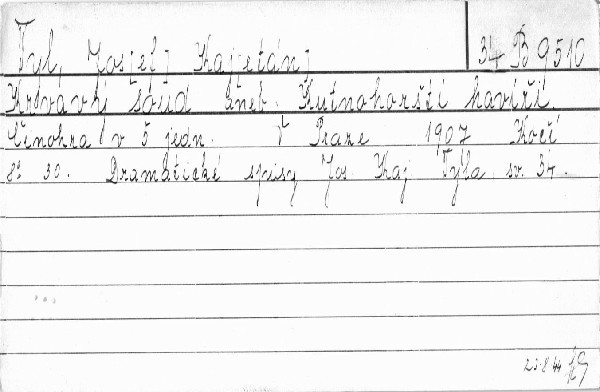 Tyl, Jos[ef] Kaj[etán] 34 B 9510
Krvavý soud aneb Kutnohorští havíři
Činohra v 5 jedn. V Praze 1907 Kočí
8° 30. Dramatické spisy Jos. Kaj. Tyla sv. 34.